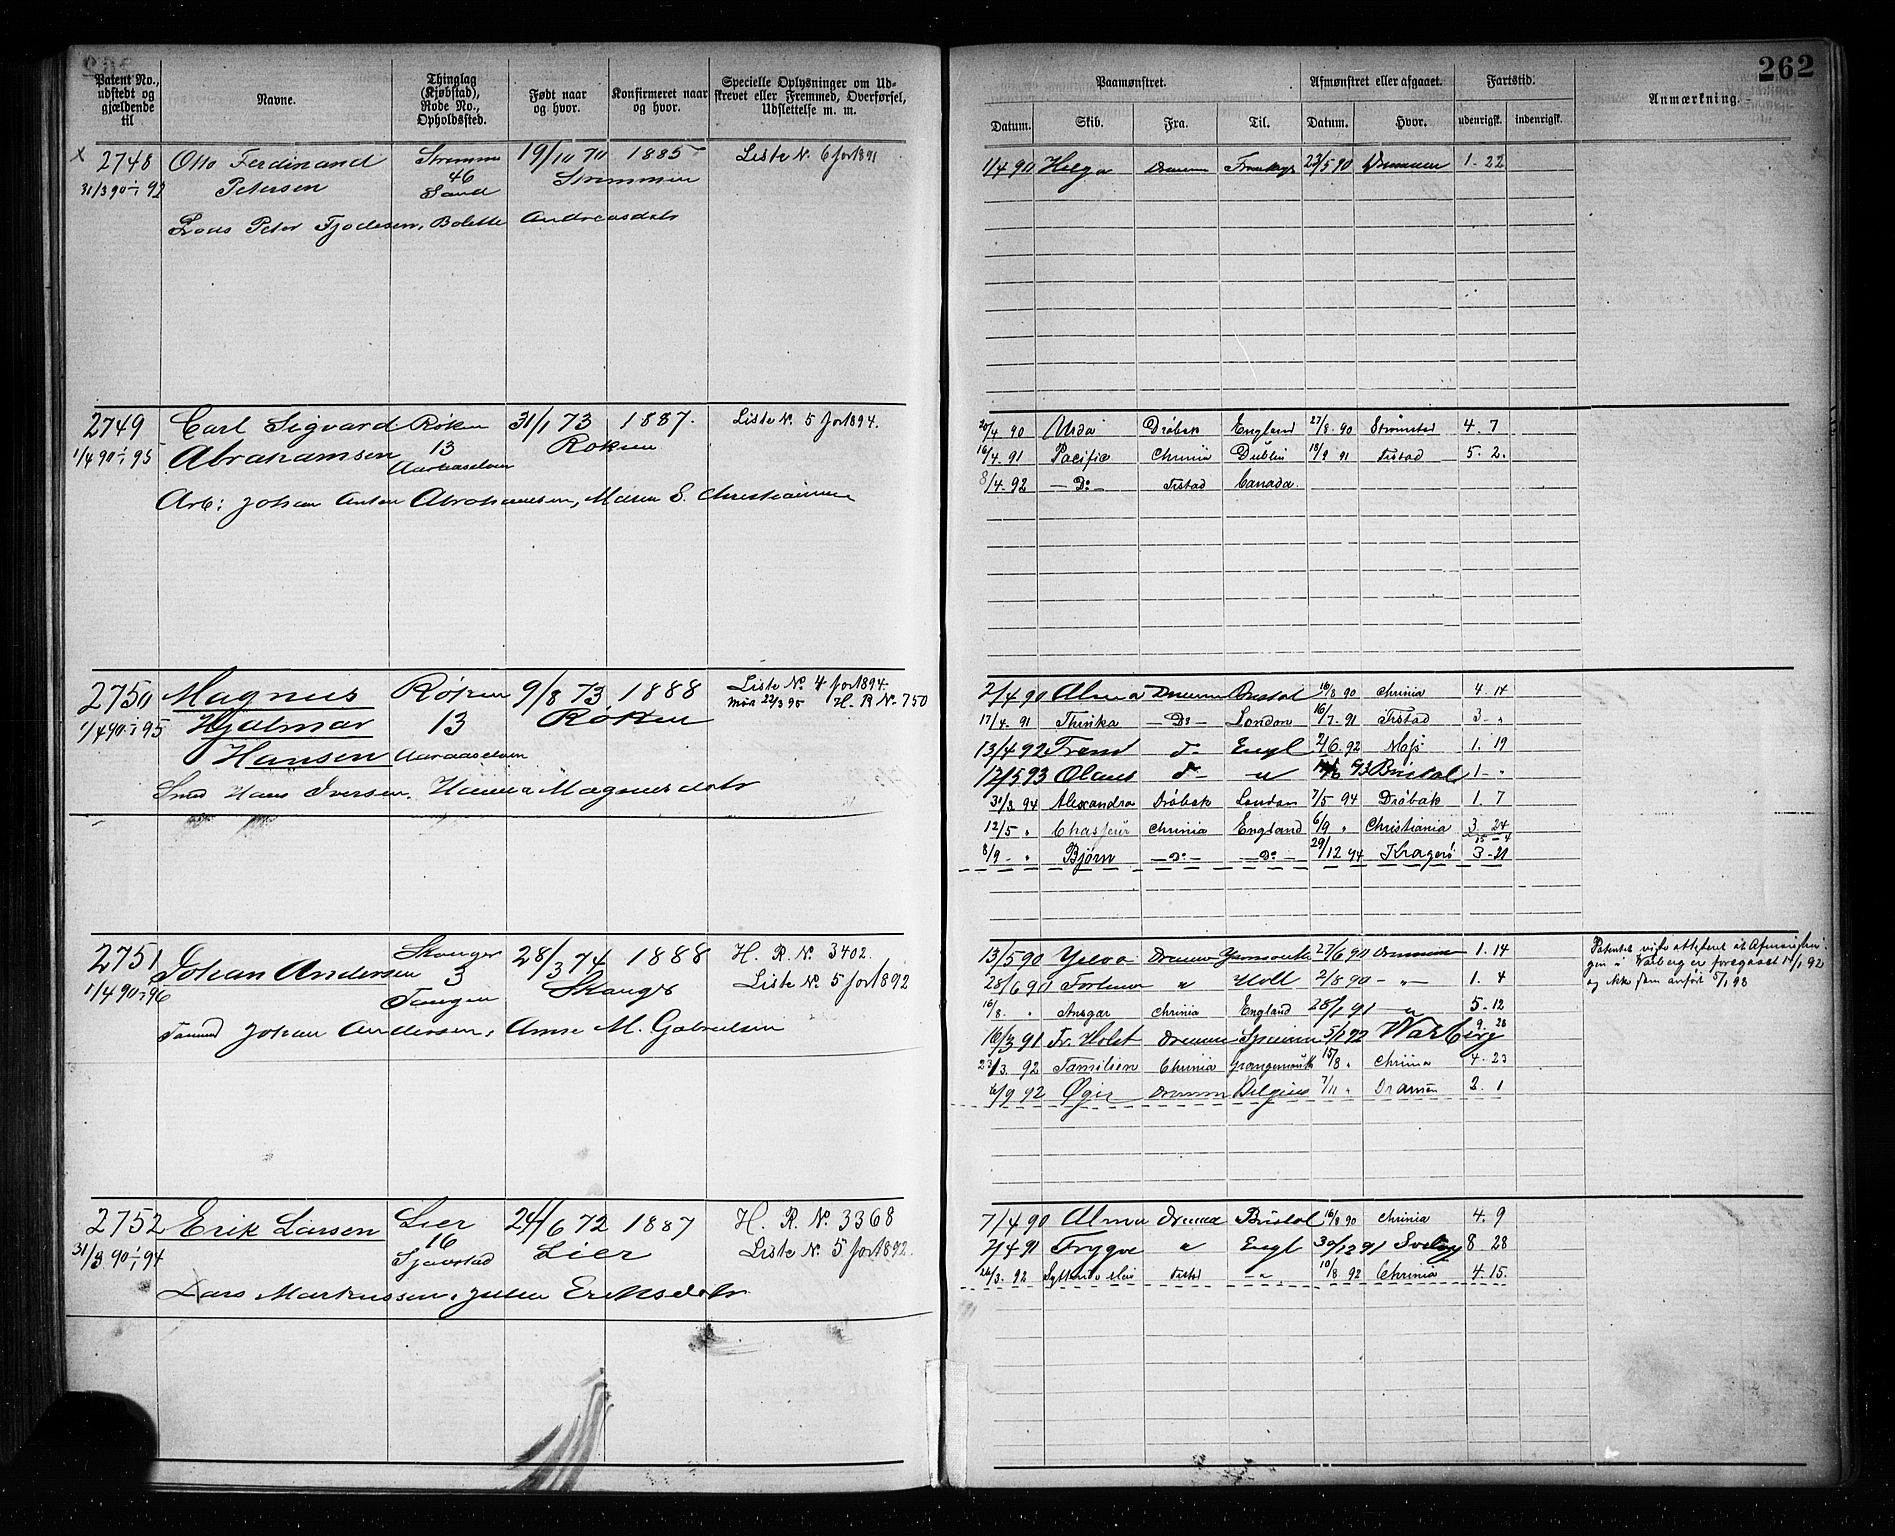 262
Patent No., udstedt og gjældende til | Navne. | Thinglag (Kjøbstad), Rode No., Opholdssted. | Født naar og hvor. | Konfirmeret naar og hvor. | Specielle Oplysninger om Udskrevet eller Fremmed, Overførsel, Udslettelse m. m.
Paamønstret. | Afmønstret eller afgaaet. | Fartstid. | Anmærkning.
Datum. | Skib. | Fra. | Til. | Datum. | Hvor. | udenrigsk. | indenrigsk.
x 2748 | Otto Ferdinand | Strømmen | 19/10 70 | 1885 | Liste № 6 for 1891
31/3 90 - 1/1 92 | Petersen | 46 Sand | Strømmen
Peter Bolette Andreasdatr
1/4 90 | Helga | Drammen | 23/5 90 | Drammen | 1. 22
2749 | Carl Sigvard | Røken | 31/1 73 | 1887. | Liste № 5 for 1894.
1/4 90 - 1/1 95 | Abrahamsen | 13 | Røken
Arb: Johan Anton Abrahamsen, Maren S. Christiansen
20/4 90 | Urda | Drøbak | England | 27/8 90 | Strømstad | 4. 7
16/4. 91 | Pacific | Chrinia | Dublin | 19/9 91 | Frstad | 5. 2.
8/4. 92 | — Do — | Frstad | Canada.
2750 | Magnus | Røken | 9/8 73 | 1888 | Liste № 4 for 1894.
1/4 90 - 1/1 95 | Hjalmar | 13 | Røken | 22/3 95 H. R № 750
Hansen
Smed Hans Iversen, Hanna Magnusdatr
2/4 90 | Alma | Drammen | Bristol | 16/8 90 | Chrinia | 4. 14
17/4. 91 | Thinka | — Do — | London | 16/7. 91 | Frstad | 3. „
13/4 92 | Fremd | do | Engl | 2/6 92 | Moss | 1. 19
12/5 93 | Olaus | do | „ | 93 | Bristol | 1 - „
31/3. 94 | Alexandra | Drøbak | London | 7/5 94 | Drøbak | 1. 7
12/5 „ | Chasseur | Chrinia | England | 6/9 „ | Christiania | 3 24
15 - 4
8/9 - „ | Bjørn | — Do — | — Do — | 29/12 94 | Kragerø | 3 - 21
2751 | Johan Andersen | Skauger | 28/3 74 | 1888 | H. R. № 3402.
1/4 90 - 1/1 96 | 3 Tangen | Skauger | Liste № 5 for 1892
Johan Andersen, Anne M. Gabrielsen
13/5 90 | Yslva | Drammen | Yarmouth | 27/6 90 | Drammen | 1. 14
28/6 90 | Fortuna | „ | Holl | 2/8 90 | — „ — | 1. 4
16/8. „ | Ansgar | Chrinia | England | 28/1 91 | „ | 5. 12
16/3 91 | Fr. Holst | Drammen | Spanien | 5/1 92 | Warberg | 9. 28
23/3. 92 | Familien | Chrinia | Grangemouth | 15/8 „ | Chrinia | 4. 23
6/9 92 | Øgir | Drammen | Belgien | 7/11 „ | Drammen | 2. 1
2752 | Erik Larsen | Lier | 24/6 72 | 1887 | H. R. № 3368
31/3 90 - 1/1 94 | 16 | Lier | Liste № 5 for 1892.
Lars Markussen, Julia Eriksdatr
7/4 90 | Alma | Drammen | Bristol | 16/8 90 | Chrinia | 4. 9
2/4 91 | Trygve | „ | Engl | 30/12 91 | Svelvig | 8 28
26/3. 92 | Syttende Mai | Frstad | — „ — | 10/8 92 | Chrinia | 4. 15.